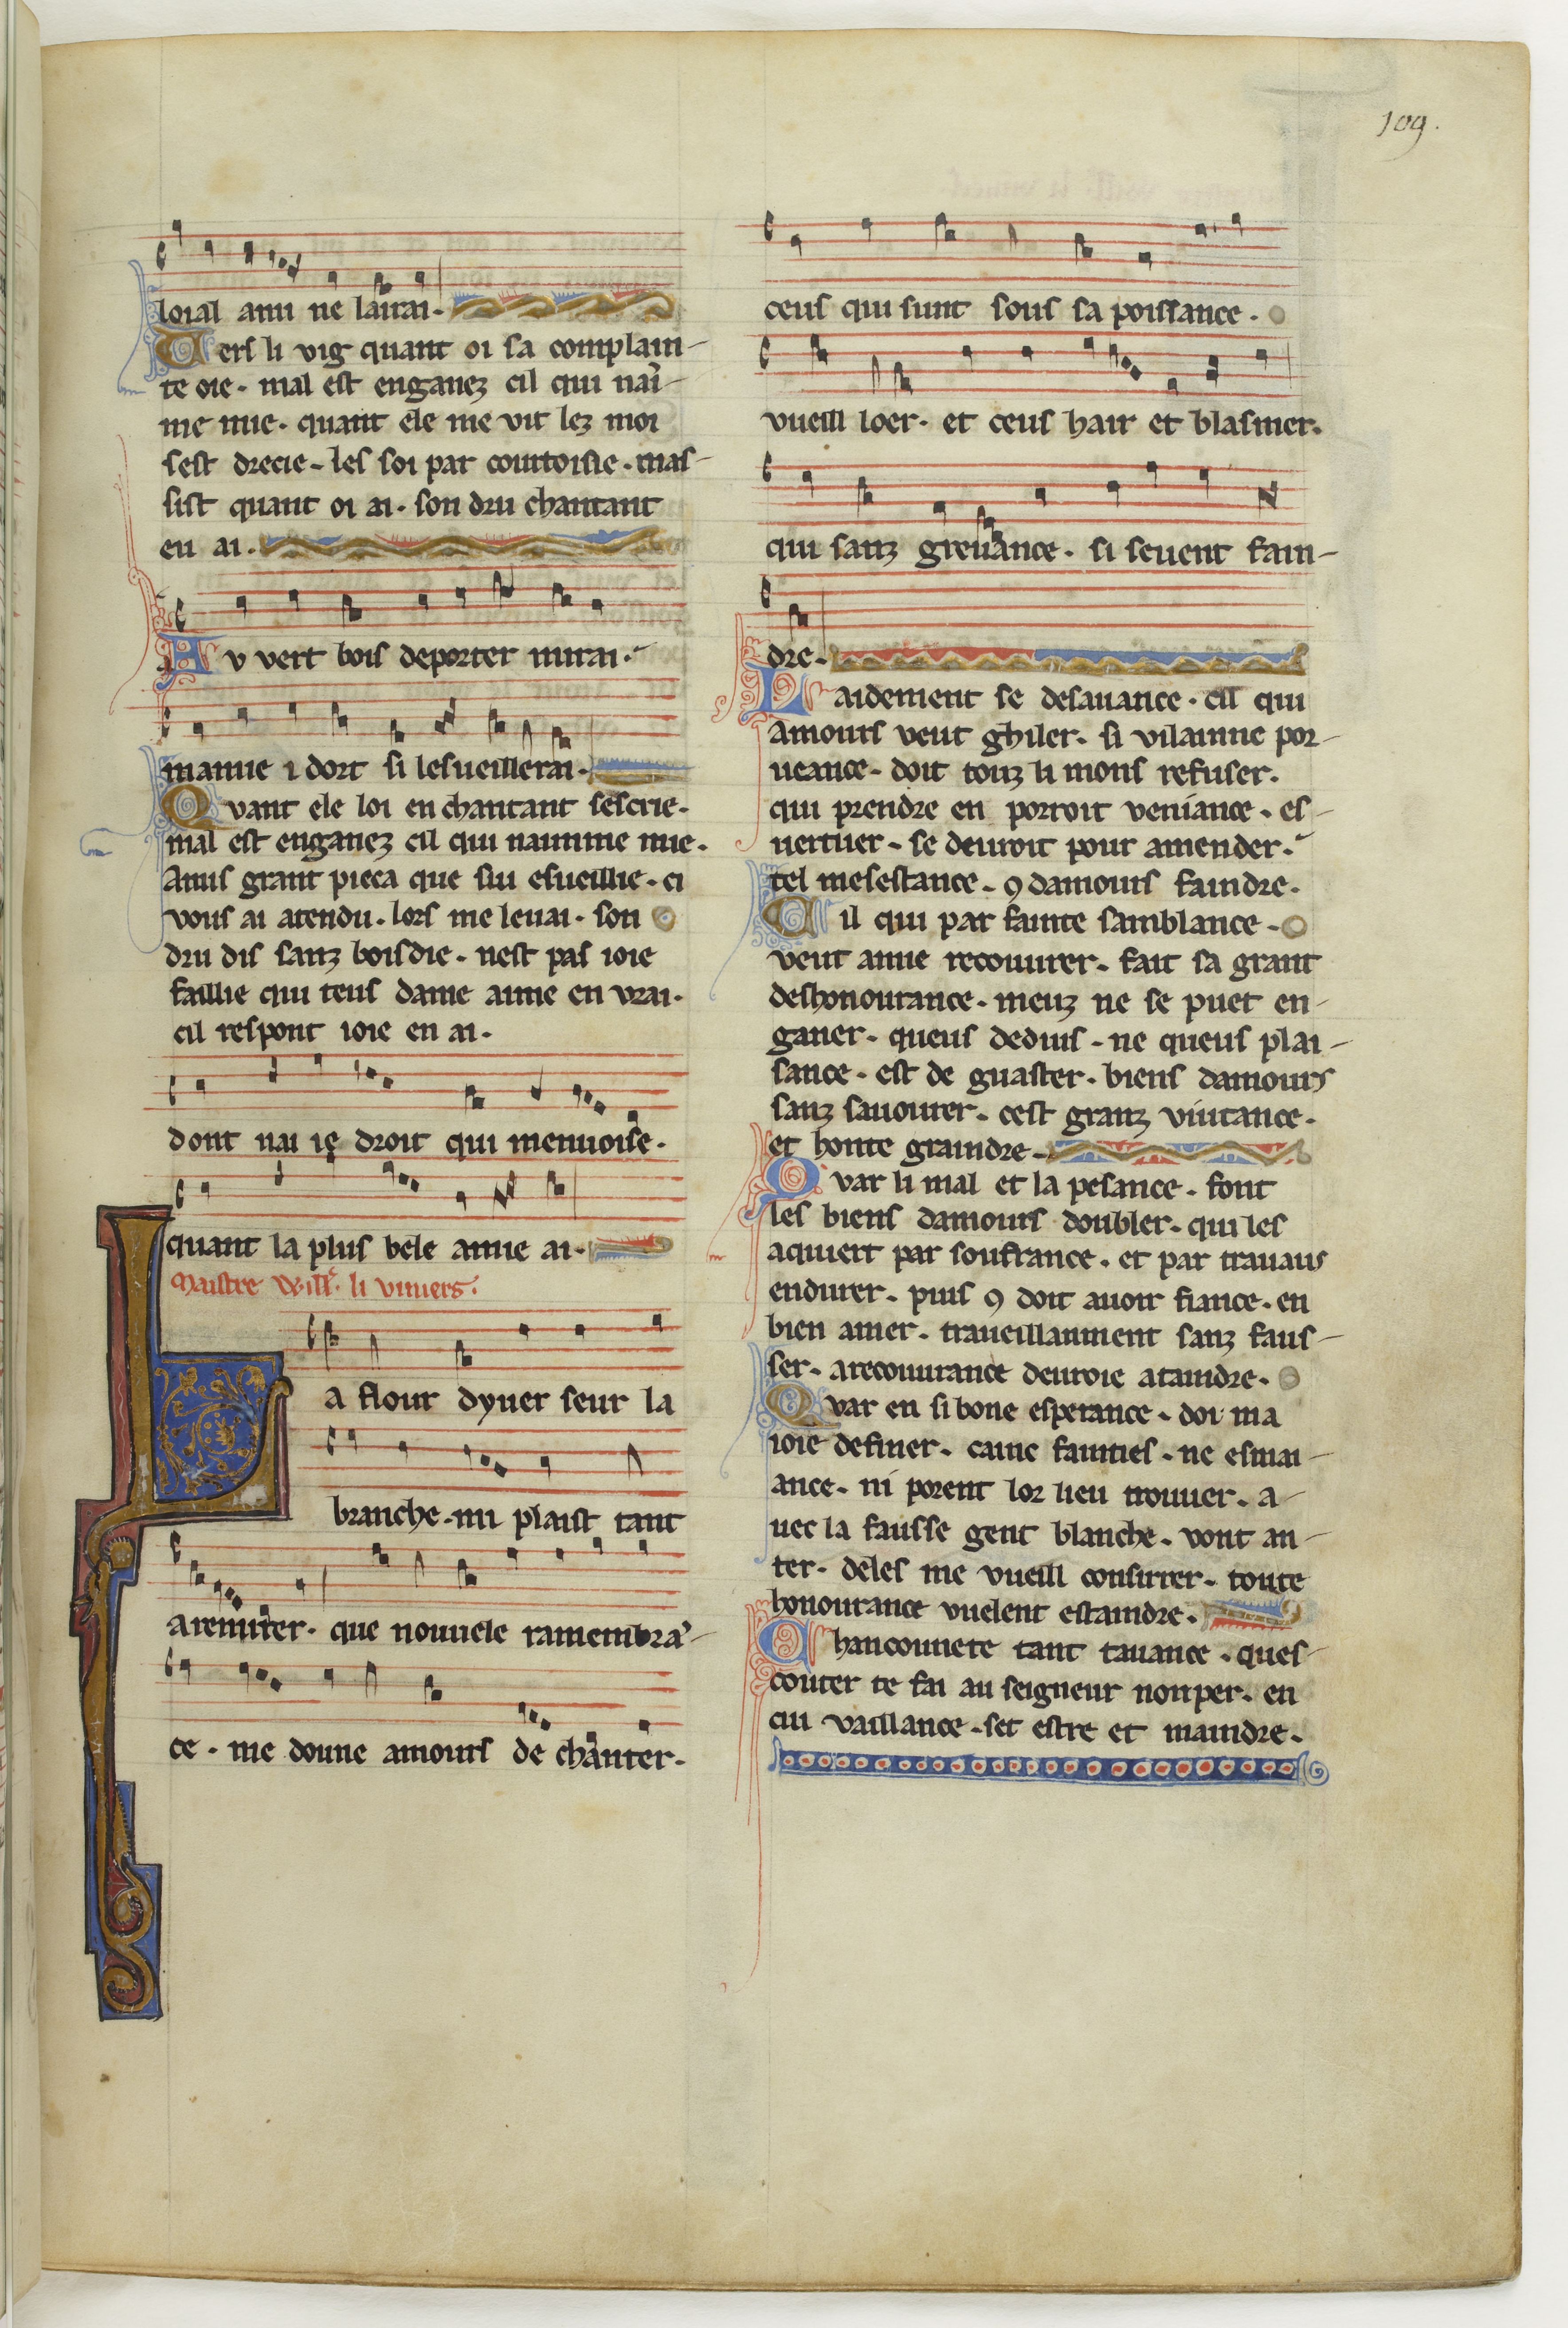 109.
loial ami ne lairai.
Vers li ving quant oi sa complain-
te oie. mal est enganez cil qui nai-
me mie. quant ele me vit lez moi
sest drecie. les soi par courtoisie. mas-
sist quant oi ai. son dru chantant
eu ai.
Au vert bois deporter mirai.
mamie i dort si lesveillerai.
Quant ele loi en chantant sescrie.
mal est enganez cil qui naimme mie.
Amis grant pieca que sui esueillie. ci
vous ai atendu. lors me leuai. son
dru dis sanz boisdie. nest pas ioie
faillie qui teus dame aime en vrai.
cil respont ioie en ai.
dont nai ie droit qui menuoise.
quant la plus bele amie ai.
Maistre Will'. li viniers.
La flour dyuer seur la
branche. mi plaist tant
a remirer. que nouuele ramembra-
ce. me doune amours de chanter.
ceus qui sunt sous sa poissance.
vueill loer. et ceus hair et blasmer.
qui sanz greuance. si seuent fain-
dre.
Laidement se desauance. cil qui
amours veut ghiler. si vilainne por-
ueance. doit touz li mons refuser.
qui prendre en porroit veniance. es-
uertuer. se deuroit pour amender.
tel mesestance. 9 damours faindre.
Cil qui par fainte samblance.
veut amie recouurer. fait sa grant
deshonourance. meuz ne se puet en-
ganer. queus deduis. ne queus plai-
sance. est de guaster. biens damours
sanz sauourer. cest granz viutance.
et honte graindre.
Quar li mal et la pesance. font
les biens damours doubler. qui les
aquiert par soufrance. et par trauaus
endurer. puis 9 doit auoir fiance. en
bien amer. traueillanment sanz faus-
ser. a recouurance deuroie ataindre.
Quar en si bone esperance. doi ma
ioie definer. caine fainties. ne esmai-
ance. ni porent lor lieu trouuer. a-
uec la fausse gent blanche. vont an-
ter. deles me vueill consirrer. toute
honourance vuelent estaindre.
Chanconnete tant tauance. ques-
couter te fai au seigneur nonper. en
cui vaillance. set estre et maindre.